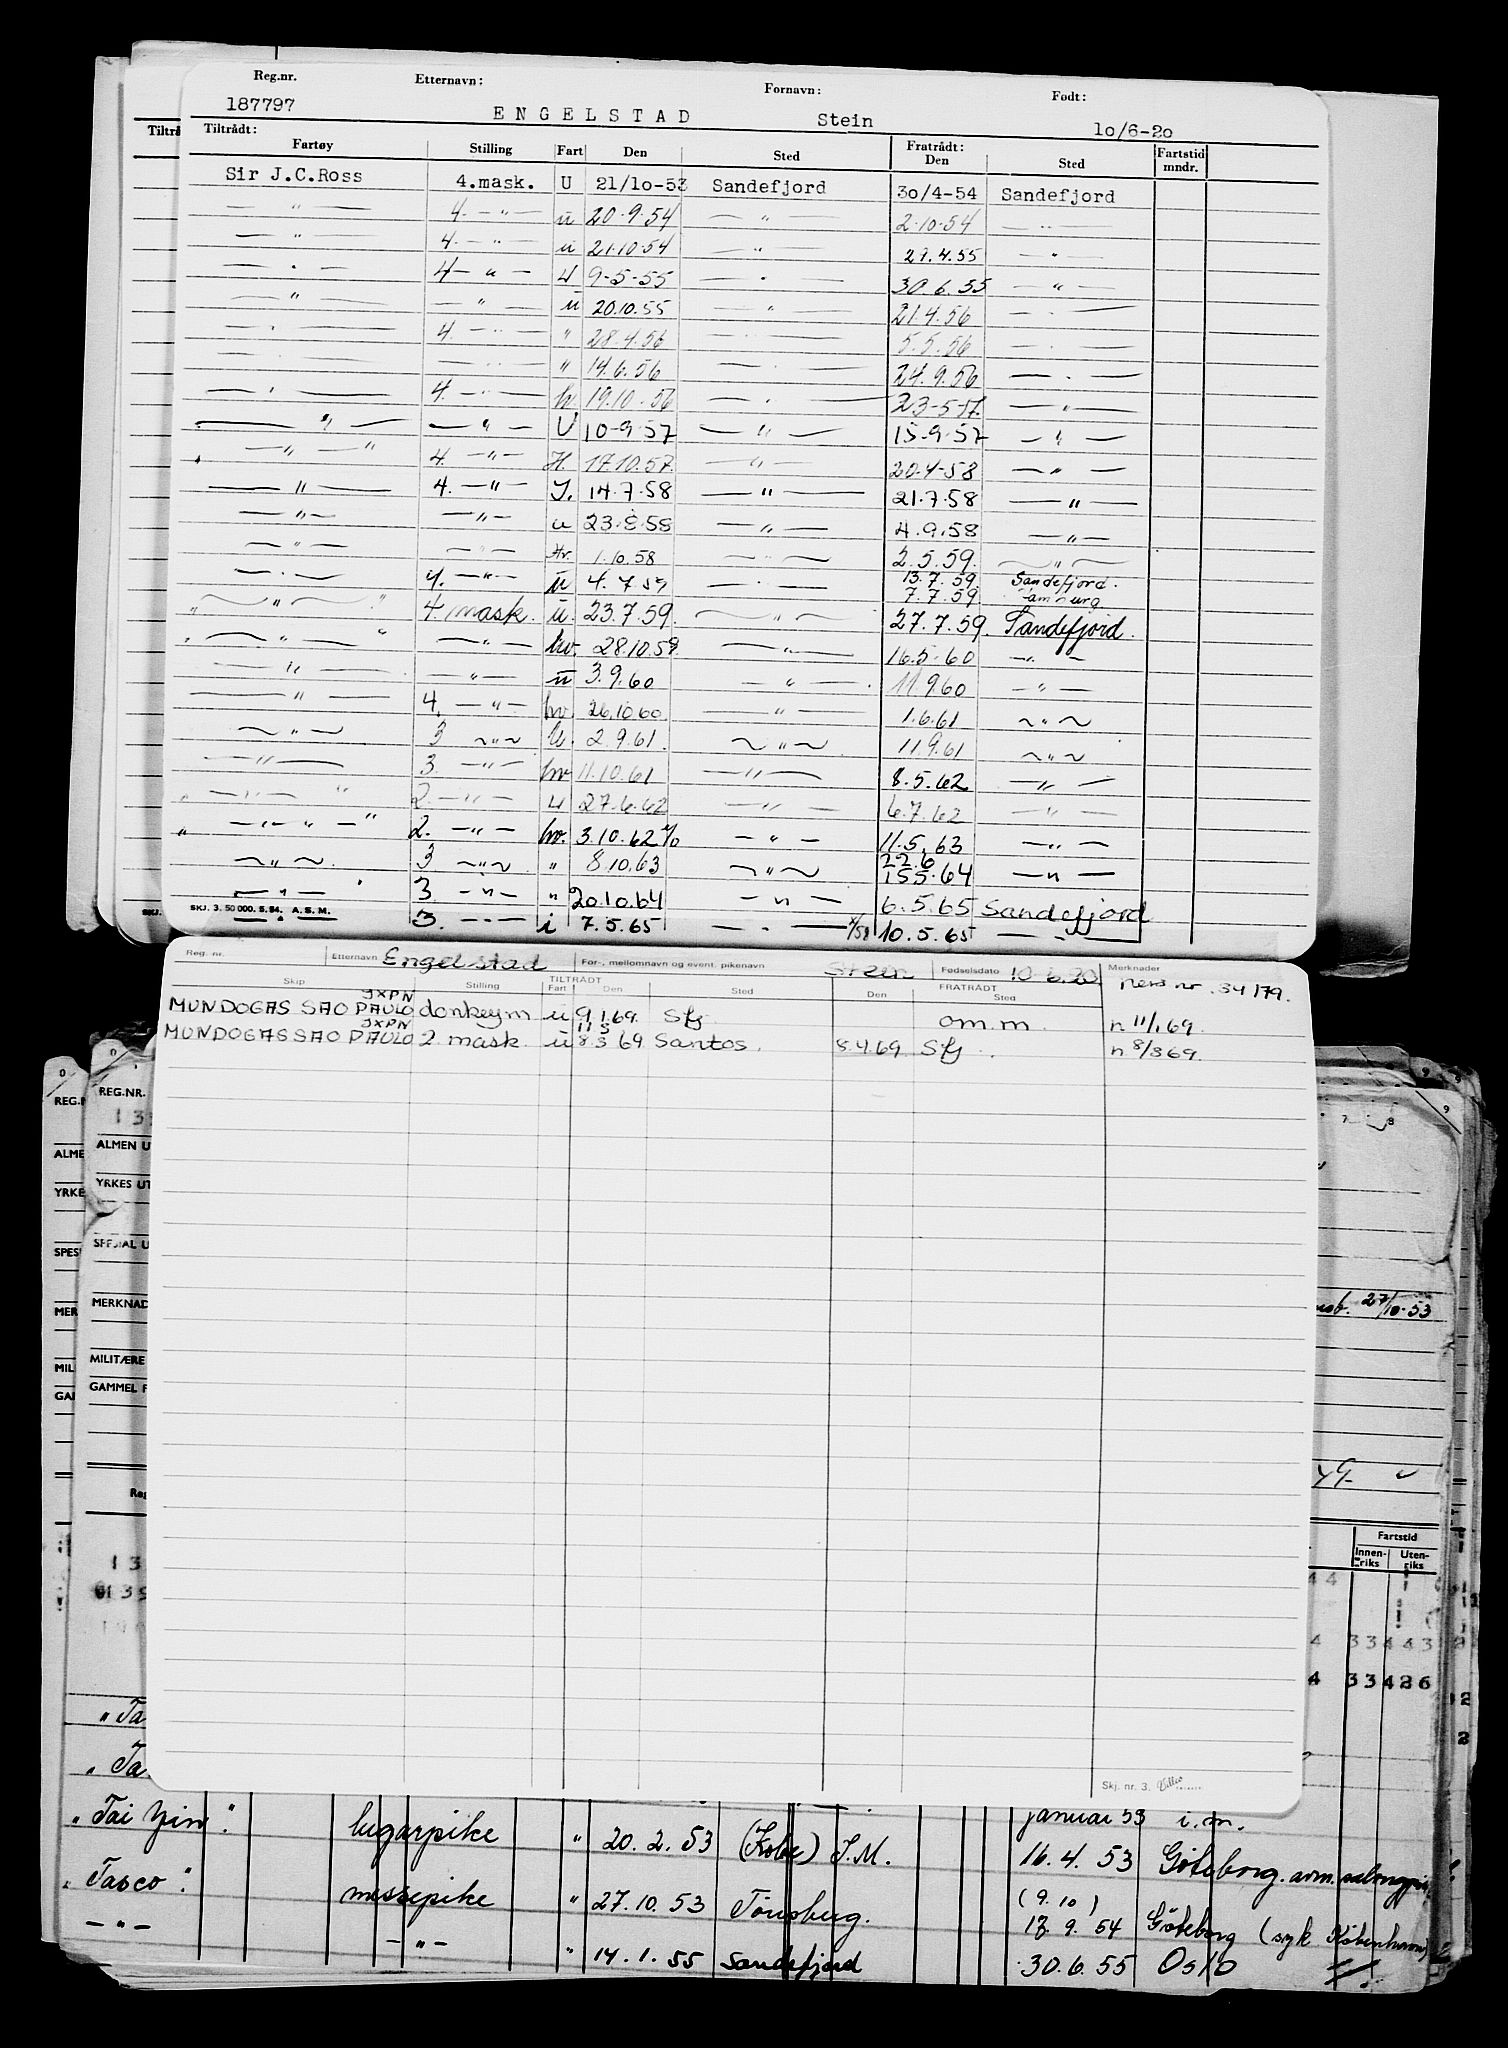 Reg.nr. Etternavn: Fornavn: Født:
187797 ENGELSTAD Stein 10/6-20
Tiltrådt: Fratrådt: Fartstid
Fartøy Stilling Fart Den Sted Den Sted mndr.
Sir J.C.Ross 4.mask. U 21/10-53 Sandefjord 30/4-54 Sandefjord
— " — 4. — " — u 20.9.54 — " — 2.10.54 — " —
— " — 4. — " — u 21.10.54 — " — 27.4.55 — " —
— " — 4 — " — U 9-5-55 — " — 30.6.55 — " —
— " — — " — u 20.10.55 — " — 21.4.56 — " —
— " — 4. — " — " 28.4.56 — " — 5.5.56 — " —
— " — — " — " 14.6.56 — " — 24.9.56 — " —
— " — 4. — " — hv. 19.10.56 — " — 23-5-57. — " —
— " — — " — U 10-9-57 — " — 15-9-57 — " —
— " — " 4. — " — H. 17.10.57. — " — 20.4-58 — " —
— " — 4. — " — U. 14.7.58 — " — 21.7.58 — " —
— " — — " — u 23.8.58 — " — 4.9.58 — " —
— " — — " — Hv. 1.10.58 — " — 2.5.59. — " —
— " — 4. — " — u 4.7.59 — " — 13.7.59. Sandefjord.
7.7.59
" — " — " 4 mask. u. 23.7.59. — " — 27.7.59. Sandefjord.
" — " — " — " — hv. 28.10.59. — " — 16.5.60 — " —
— " — — " — u 3.9.60 — " — 11.9.60 — " —
— " — 4. — " — hv. 26.10.60. — " — 1.6.61 — " —
— " — 3 — " — u. 2.9.61. — " — 11.9.61 — " —
— " — 3. — " — hv 11.10.61 — " — 8.5.62 — " —
" — " — " 2. — " — u 27.6.62 — " — 6.7.62 — " —
" — " — " 2. — " — hv. 3.10.62 — " — 11.5.63 — " —
— " — 3 — " — " 8.10.63 — " — 22.6
15.5.64 — " —
— " — 3. — " — " 20.10.64 — " — 6.5.65 Sandefjord
SKJ. 3. 50 000. 5.54. A.S.M.
— " — 3. — " — i 7.5.65 — " — 10.5.65 — " —
Reg. nr. Etternavn Engelstad For-, mellomnavn og event. pikenavn Stein Fødselsdato 10.6.20. Merknader
pers nr. 34179.
Skip Stilling TILTRÅDT Fart Den Sted FRATRÅDT Den Sted
JXPN
MUNDOGAS SAO PAULO donkeym u 9.1.69. Sfj om.m. n 11/1 69.
JXPN 11 3
MUNDOGAS SAO PAULO 2 mask u 8.3 69 Santos. 8.4.69 Sfj. n 8/3 69.
Skj. nr. 3.
REG.NR.
ALMEN U
YRKES UT
SPESIAL U
MERKNAD
MILITÆRE
GAMMEL F
27/10-53
Fartstid
Innenriks Utenriks
33443
33426
" Ta
" Ta
" Tai Yin". lugarpike " 20.2.53 (Kobe) I.M. januar 53 i.m.
16.4.53 Göteborg.
" Tasco". messepike " 27.10.53 Tønsberg. (9.10)
17.9.54 Göteborg (syk København)
— " — — " — " 14.1.55 Sandefjord 30.6.55 Oslo